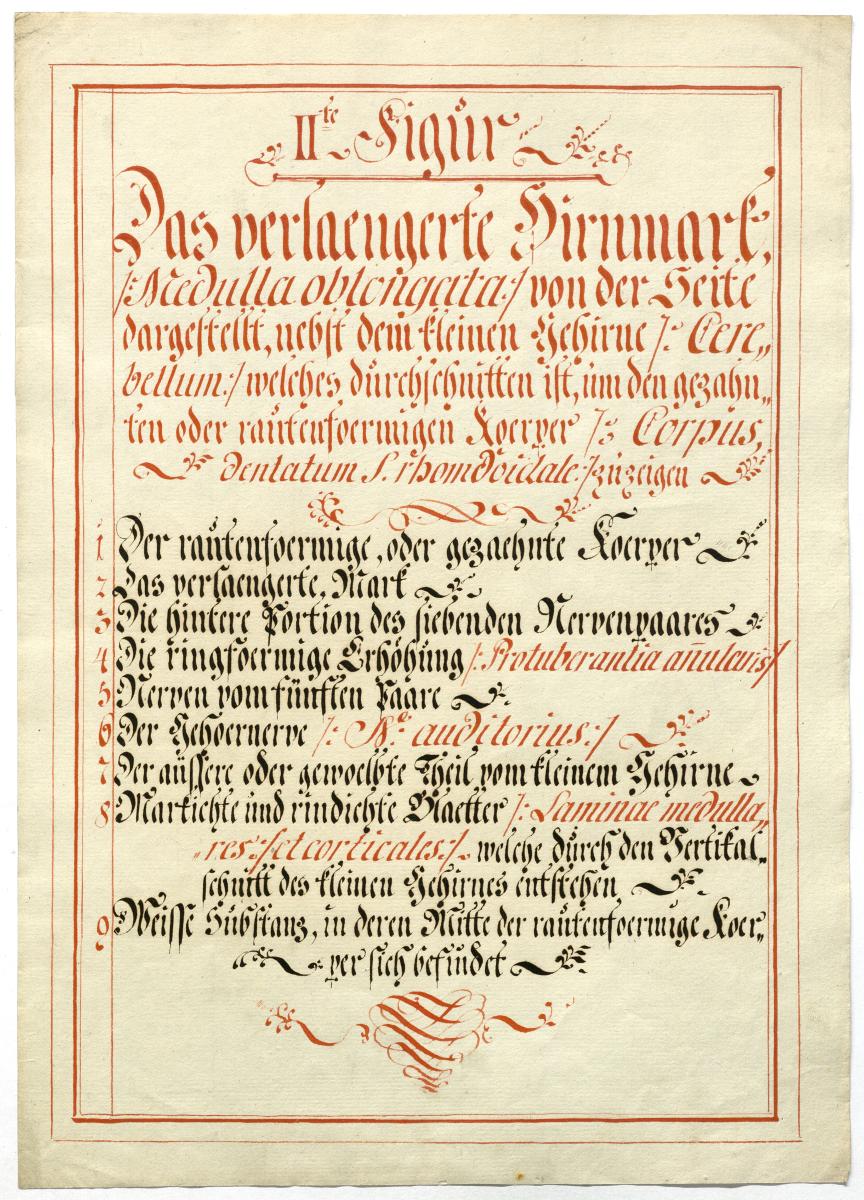 IIte Figur
Das verlaengerte Hirnmark,
/: Medulla oblongata :/ von der Seite
dargestellt, nebst dem kleinen Gehirne /: Cere„
bellum :/ welches durchschnitten ist, um den gezahn„
ten oder rautenfoermigen Koerper /: Corpus,
dentatum S. rhomboidale :/ zu zeigen
1 Der rautenfoermige, oder gezaehnte Koerper
2 Das verlaengerte, Mark
3 Die hintere Portion des siebenden Nervenpaares
4 Die ringfoermige Erhöhung /: Protuberantia anularis /
5 Nerven vom fünften Paare
6 Der Gehoernerve /: Ns. auditorius :/
7 Der aüssere oder gewoelbte Theil vom kleinem Gehirne
8 Markichte und rindichte Blaetter /: Laminae medulla„
„res :/ et corticales :/. welche durch den Vertikal„
schnitt des kleinen Gehirnes entstehen
9 Weisse Substanz, in deren Mitte der rautenfoermige Koer„
per sich befindet